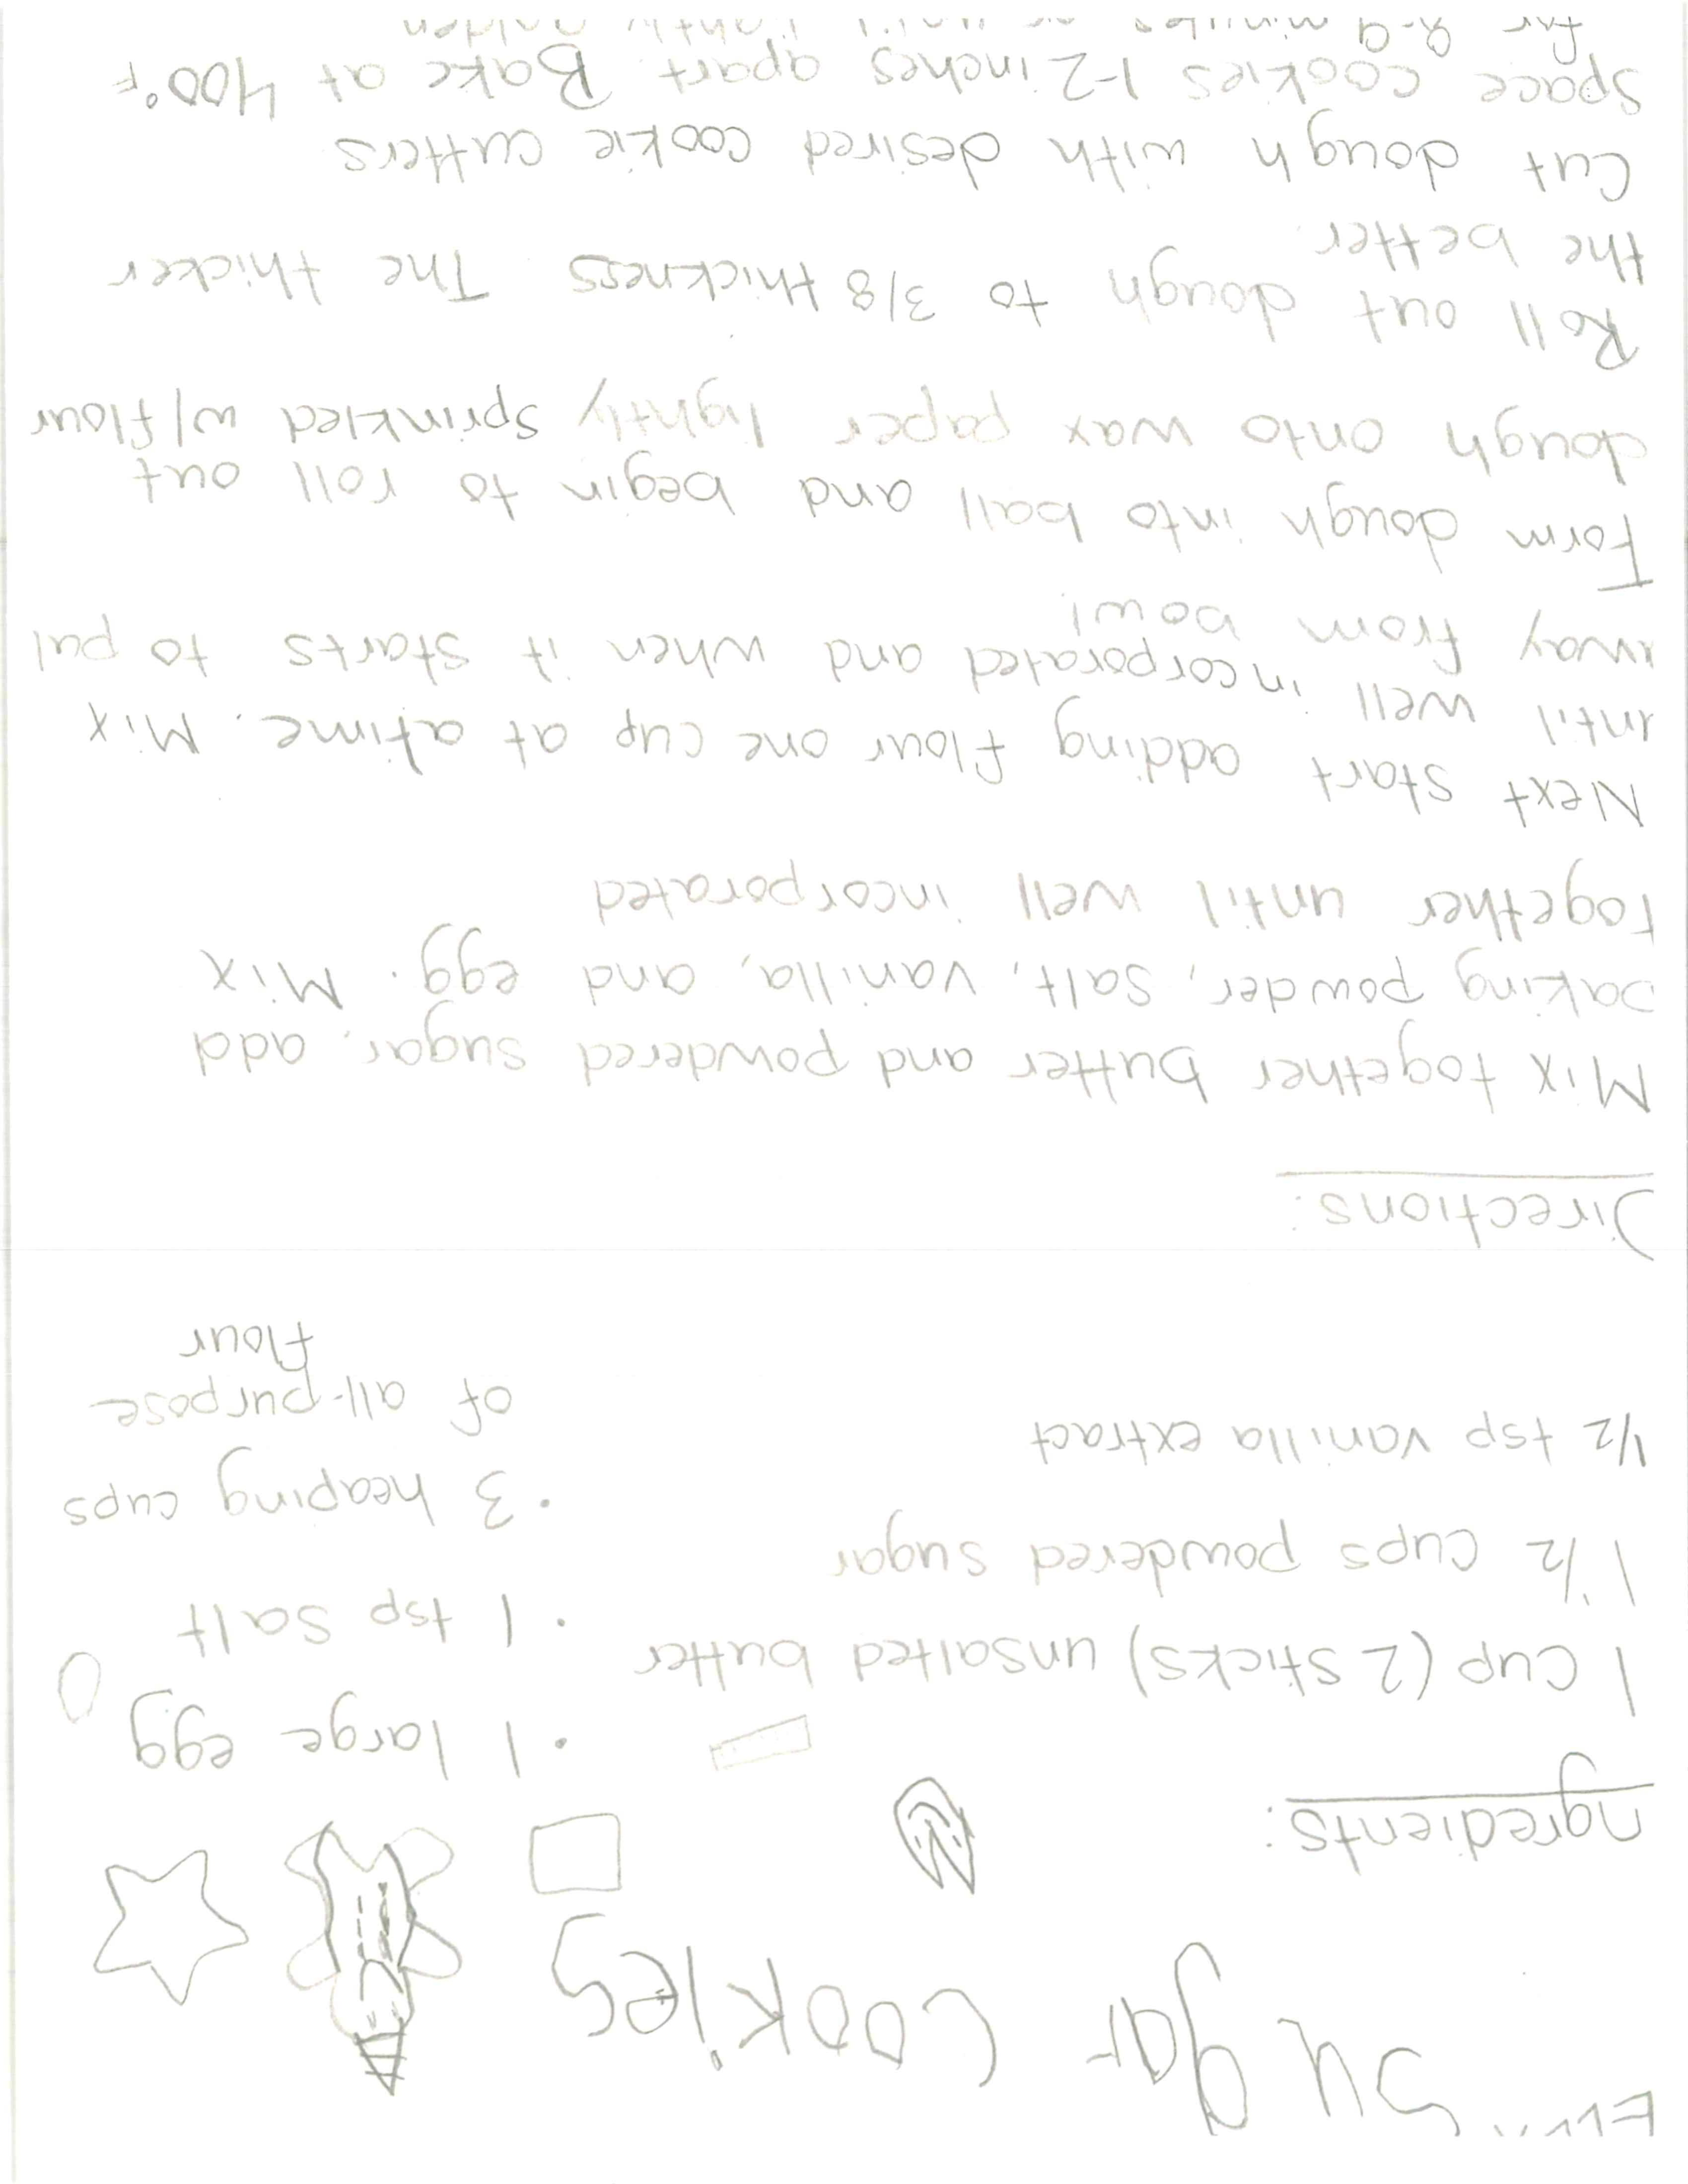 Sugar Cookies
ngredients:
1 cup (2 sticks) unsalted butter
1 1/2 cups powdered sugar
1/2 tsp vanilla extract
· 1 large egg
· 1 tsp salt
· 3 heaping cups
of all-purpose
flour
Directions:
Mix together butter and powdered sugar, add
baking powder, salt, vanilla, and egg. Mix
together until well incorporated
Next start adding flour one cup at a time. Mix
until well incorporated and when it starts to pul
away from bowl
Form dough into ball and begin to roll out
dough onto wax paper lightly sprinkled w/flour
Roll out dough to 3/8 thickness. The thicker
the better.
Cut dough with desired cookie cutters
Space cookies 1-2 inches apart. Bake at 400°F
for 8-9 minutes or until lightly golden